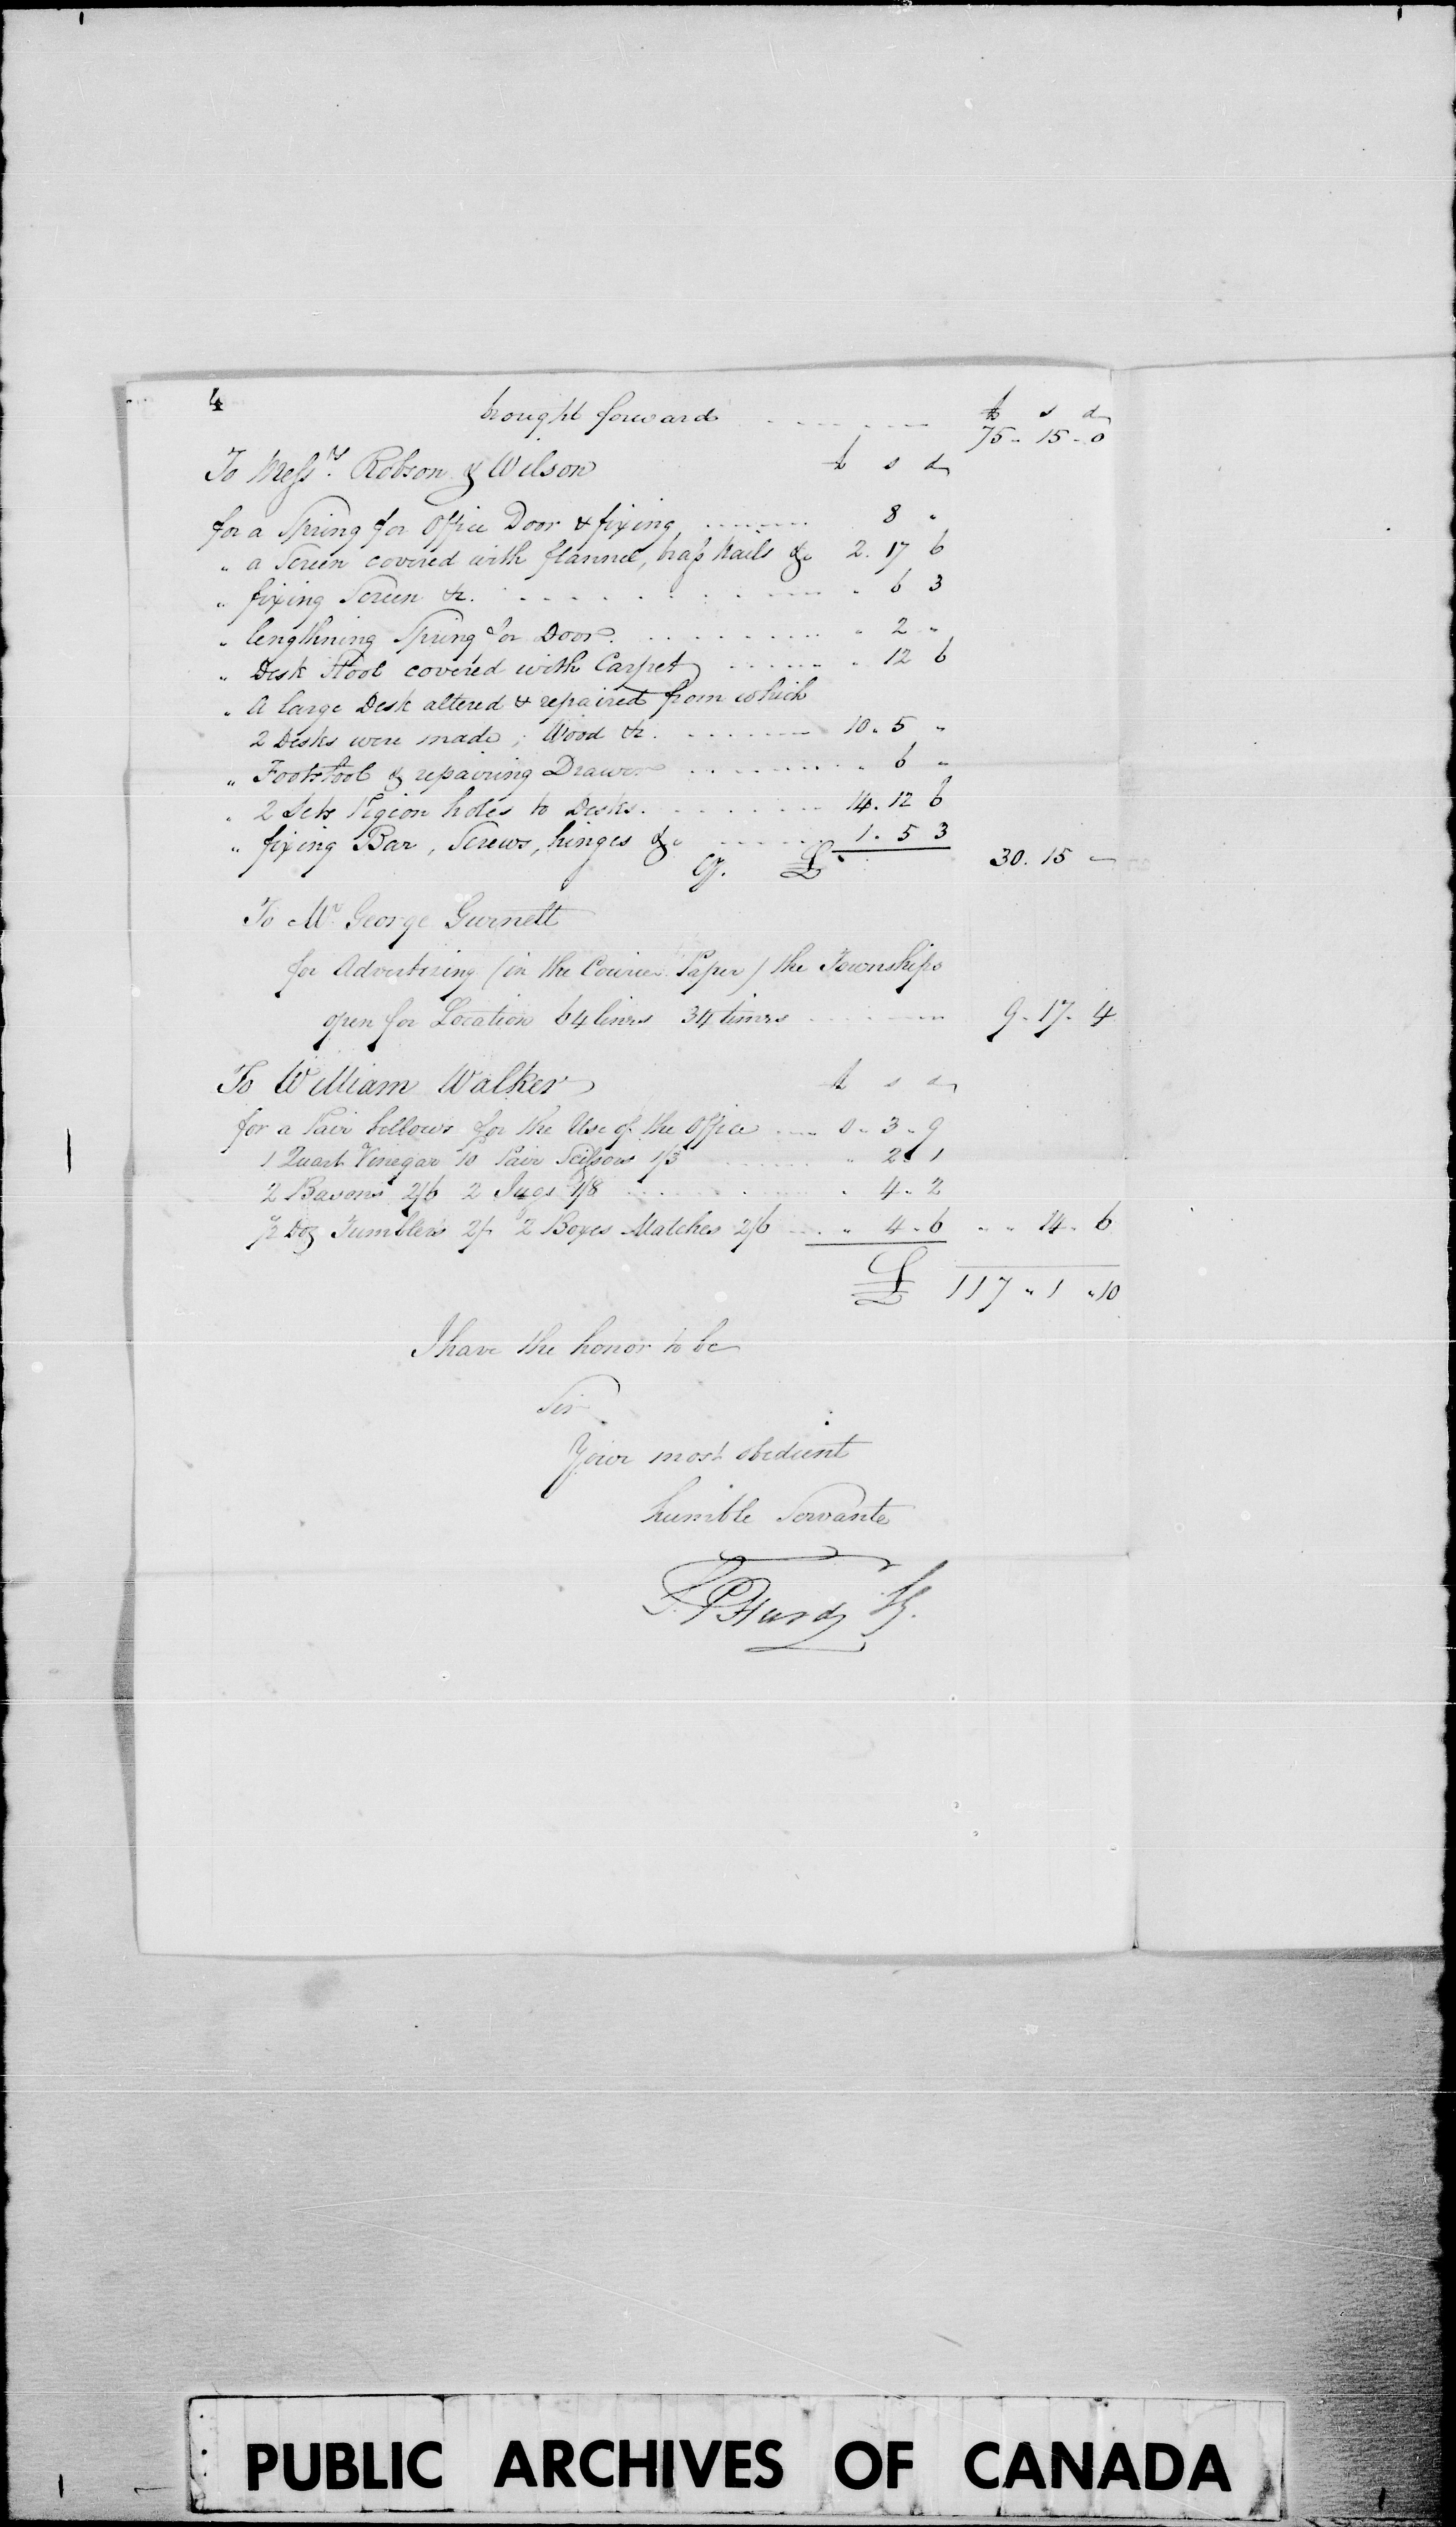 4
brought forward £ s d
75 - 15 - 0
To Messrs. Robson & Wilson £ s d
for a Spring for Office Door & fixing 8 "
" a Screen covered with flannel, brass Nails &c 2. 17 6
" fixing Screen &c. " 6 3
" lengthning Spring for Door. " 2 "
" Desk Stool covered with Carpet " 12 6
" A large Desk altered & repaired from which
2 Desks were made, Wood &c. 10. 5 "
" Footstool & repairing Drawer " 6 "
" 2 Sets Pigeon holes to Desks. 14. 12 6
" fixing Bar, Screws, hinges &c 1. 5 3
Cy. £ 30. 15 -
To Mr. George Gurnett
for Advertizing (in the Courier Paper) the Townships
open for Location 64 lines 34 times 9 - 17 - 4
To William Walker £ s d
for a Pair bellows for the Use of the Office 0 - 3 - 9
1 Quart Vinegar 10 Pair Scissors 1/3 " 2 1
2 Basons 2/6 2 Jugs 1/8 " 4 - 2
1/2 Doz Tumblers 2/- 2 Boxes Matches 2/6 " 4 - 6 " " 14 - 6
£ 117 " 1 " 10
I have the honor to be
Sir
Your most obedient
humble Servant
Hurd
PUBLIC ARCHIVES OF CANADA